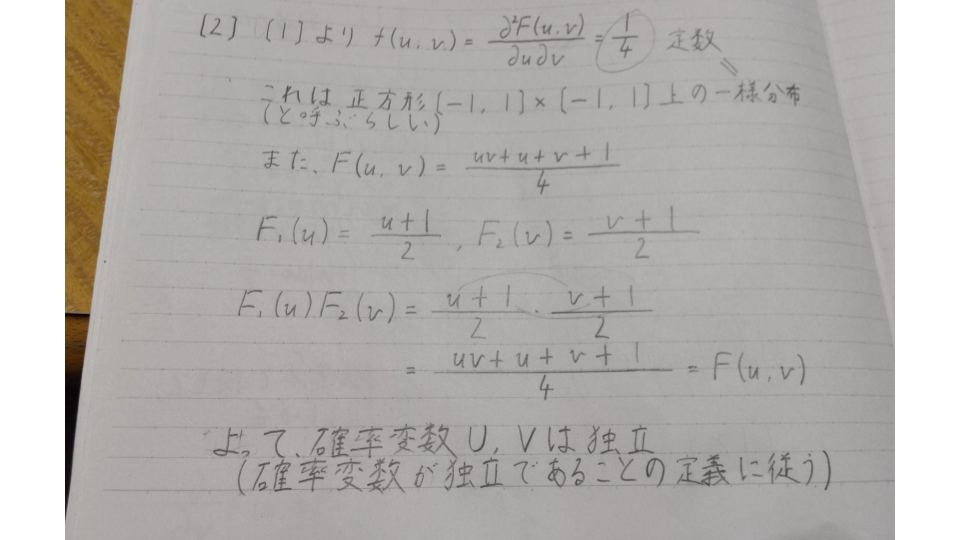 [2] [1]より f(u, v) = ∂²F(u, v)/∂u∂v = 1/4 定数
これは、正方形[-1, 1]×[-1, 1]上の一様分布
(と呼ぶらしい)
また、F(u, v) = (uv+u+v+1)/4
F₁(u) = (u+1)/2 , F₂(v) = (v+1)/2
F₁(u)F₂(v) = (u+1)/2 · (v+1)/2
= (uv+u+v+1)/4 = F(u, v)
よって、確率変数U, Vは独立
(確率変数が独立であることの定義に従う)